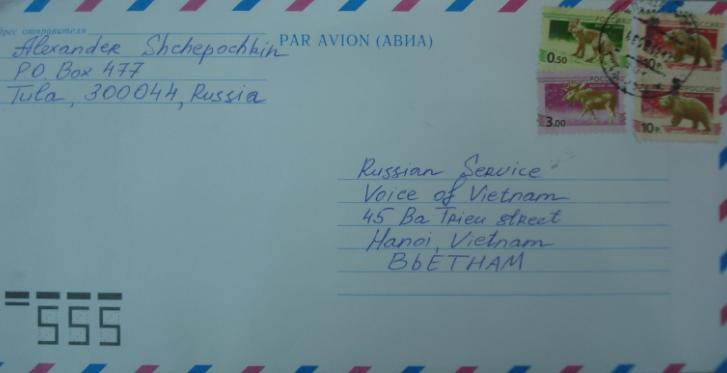 Адрес отправителя
Alexander Shchepochkin
P.O. Box 477
Tula, 300044, Russia
PAR AVION (АВИА)
РОССИЯ
0.50
РОССИЯ
3.00
РОССИЯ
10 Р.
РОССИЯ
10 Р.
Russian Service
Voice of Vietnam
45 Ba Trieu street
Hanoi, Vietnam
ВЬЕТНАМ
555